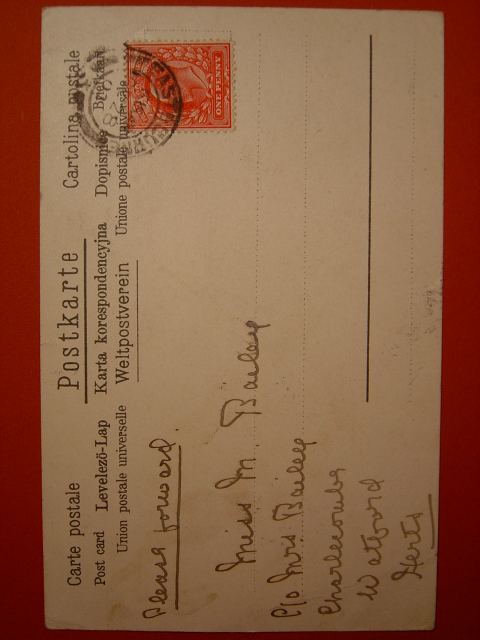 Carte postale Postkarte Cartolina postale
Post card Levelező-Lap Karta korespondencyjna Dopisnice Briefkaart
Union postale universelle Weltpostverein Unione postale universale
ONE PENNY
Please forward.
Miss M. Bailey
C/o Mrs Bailey
Charlecombe
Watford
Herts